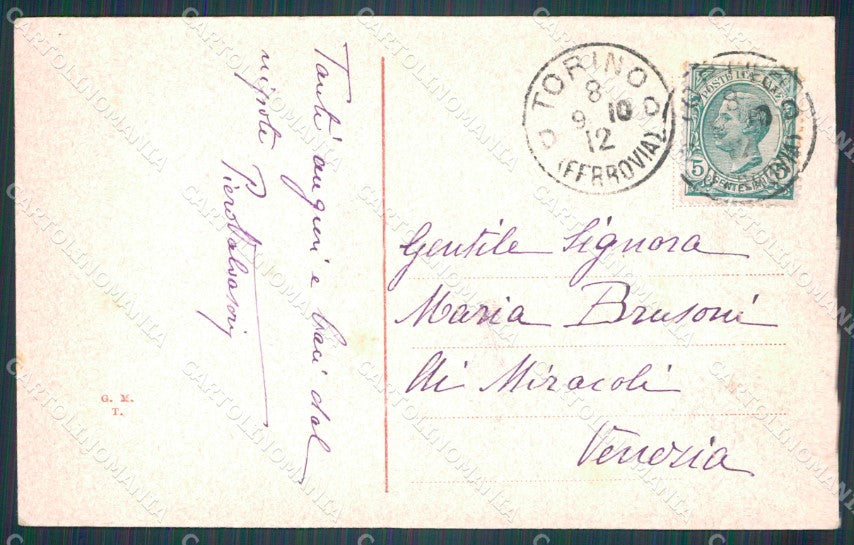 Tanti auguri e baci dal
nipote Piero Valvasorij
TORINO
8
9. 10
12
(FERROVIA)
POSTE ITALIANE
5
Gentile Signora
Maria Brusoni
Ai Miracoli
Venezia
G. M.
T.
CARTOLINOMANIA